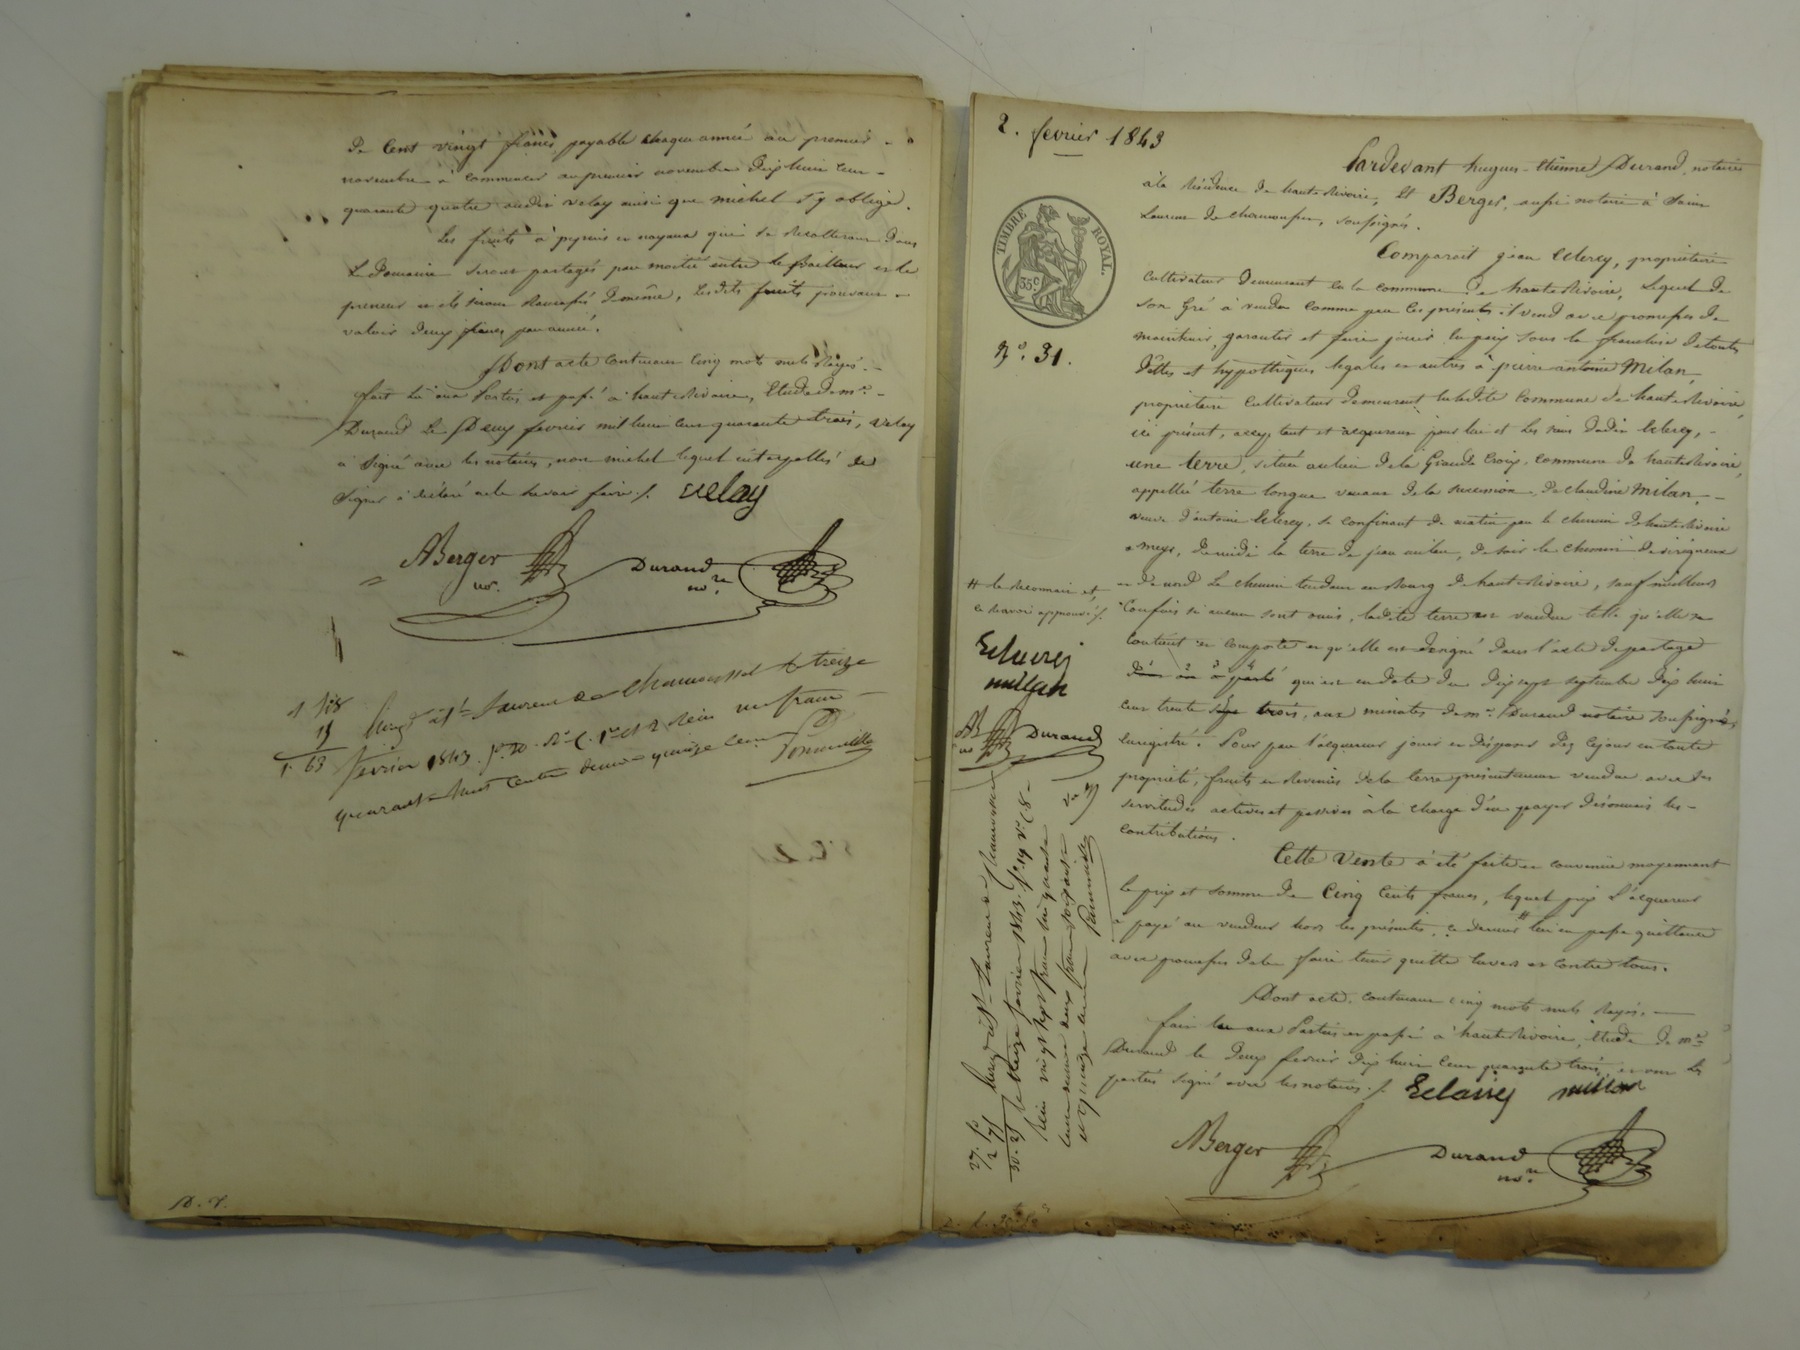 De Cent vingt francs payable chaque année au premier
novembre à commencer au premier novembre dix huit cent
quarante quatre audit velay ainsi que michel s'y oblige.
Les fruits à pepins et noyaux qui se recolteront dans
Le Domaine seront partagés par moitié entre le bailleur et le
preneur et ils seront de même, lesdits fruits pouvant
valoir deux francs par année.
Dont acte contenant cinq mots nuls Rayés.
fait lu aux Parties et passé à hauterivoire, Etude de me
Durand Le Deux fevrier mil huit cent quarante trois, Velay
a Signé avec les notaires, non michel lequel interpellé de
Signer a déclaré ne le Savoir faire ./. velay
ABerger nore Durand nore
1 48
15
1. 63
Enreg à St Laurent de Chamousset le treize
février 1843. fo Reçu un franc
quarante huit centimes quinze cent
D. V.
2. fevrier 1843
TIMBRE ROYAL.
35c
No. 31.
Pardevant hugues-étienne Durand, notaire
à la Résidence de hauterivoire, Et Berger, aussi notaire à Saint
Laurent de chamousset, soussignés.
Comparait jean Eclercy, propriétaire
cultivateur demeurant en la commune de hauterivoire, Lequel de
son Gré a vendu comme par les présentes il vend avec promesses de
maintenir, garantir et faire jouir en paix sous la franchise de toutes
dettes et hypothèques légales et autres à pierre antoine Milan,
propriétaire cultivateur demeurant en ladite commune de hauterivoire,
ici présent, acceptant et acquereur pour lui et les siens dudit Eclercy,
une terre, située au lieu de la Grande Croix, commune de hauterivoire,
appellée terre longue venant de la succession de claudine Milan,
veuve d'antoine Eclercy, se confinant de matin par le chemin de hauterivoire
à meys, de midi la terre de jean, de soir le chemin de
et de nord Le chemin tendant au bourg de hauterivoire, sauf meilleurs
Confins si aucuns sont omis, ladite terre est vendue telle qu'elle se
contient et comporte et qu'elle est désigné dans l'acte de partage
qui est en date du dix sept septembre dix huit
cent trente trois, aux minutes de me Durand notaire soussigné,
Enregistré. Pour par l'acquereur jouir et disposer dès ce jour en toute
propriété, fruits et revenus de la terre présentement vendue avec ses
servitudes actives et passives à la charge d'en payer désormais les
contributions.
Cette Vente a été faite et convenue moyennant
le prix et somme de Cinq Cents francs, lequel prix L'acquereur
a payé au vendeur hors les présentes, ce dernier # lui en passe quittance
avec promesses de l'en faire tenir quitte envers et contre tous.
Dont acte, contenant cinq mots nuls Rayés.
fait lu aux Parties et passé à hauterivoire, Etude de me
Durand le deux fevrier dix huit cent quarante trois, et ont les
parties signé avec les notaires ./. Eclairsy millan
ABerger Durand nore
# le Reconnait et
le Renvoi approuvé ./.
Eclercy
millan
AB no Durand
Enreg à St Laurent de Chamousset
le treize fevrier 1843. fo 19 Vo C. 8
Reçu vingt sept francs cinquante